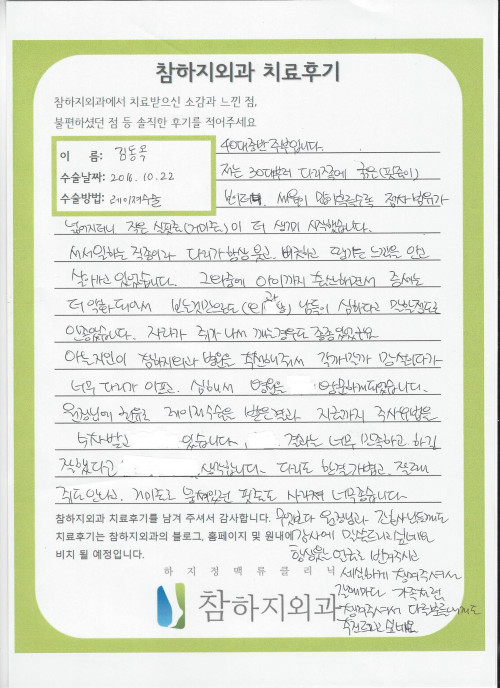 참하지외과 치료후기
참하지외과에서 치료받으신 소감과 느낀 점,
불편하셨던 점 등 솔직한 후기를 적어주세요
이 름: 김동옥
수술날짜: 2016.10.22
수술방법: 레이저수술
40대중반 주부입니다.
저는 30대부터 다리쪽에
보이더니, 세월이 점차 범위가
넓어지더니 작은 실핏줄(거미줄)이 더 생기기 시작했습니다.
서서일하는 직종이라 다리가 항상 붓고, 땅기는 느낌을 안고
살아가고 있었습니다. 그러던중에 아이까지 출산하면서 증세는
더 악화되어서 남들이 심하다고 할정도로
자다가 쥐가 나서 깨는경우도
아는지인이 참하지외과 병원을 추천해줘서 망설이다가
너무 다리가 아프고, 심해서 병원을 방문하게되었습니다.
원장님께 레이저수술을 받은결과 지금까지
있습니다. 결과는 너무 만족하고, 하길
잘했다고 생각합니다. 다리도 한결가볍고, 잘때
쥐도 안나고, 거미줄로 핏줄도 사라져 너무좋습니다
참하지외과 치료후기를 남겨 주셔서 감사합니다. 무엇보다 원장님과 간호사님들께도
치료후기는 참하지외과의 블로그, 홈페이지 및 원내에 감사에 말씀드리고싶네요
비치 될 예정입니다. 항상웃는 얼굴로 반겨주시고
세심하게 챙겨주셔서
갈때마다 가족처럼
챙겨주셔서 다른분들에게도
추천해드리고싶네요.
하지정맥류클리닉
참하지외과